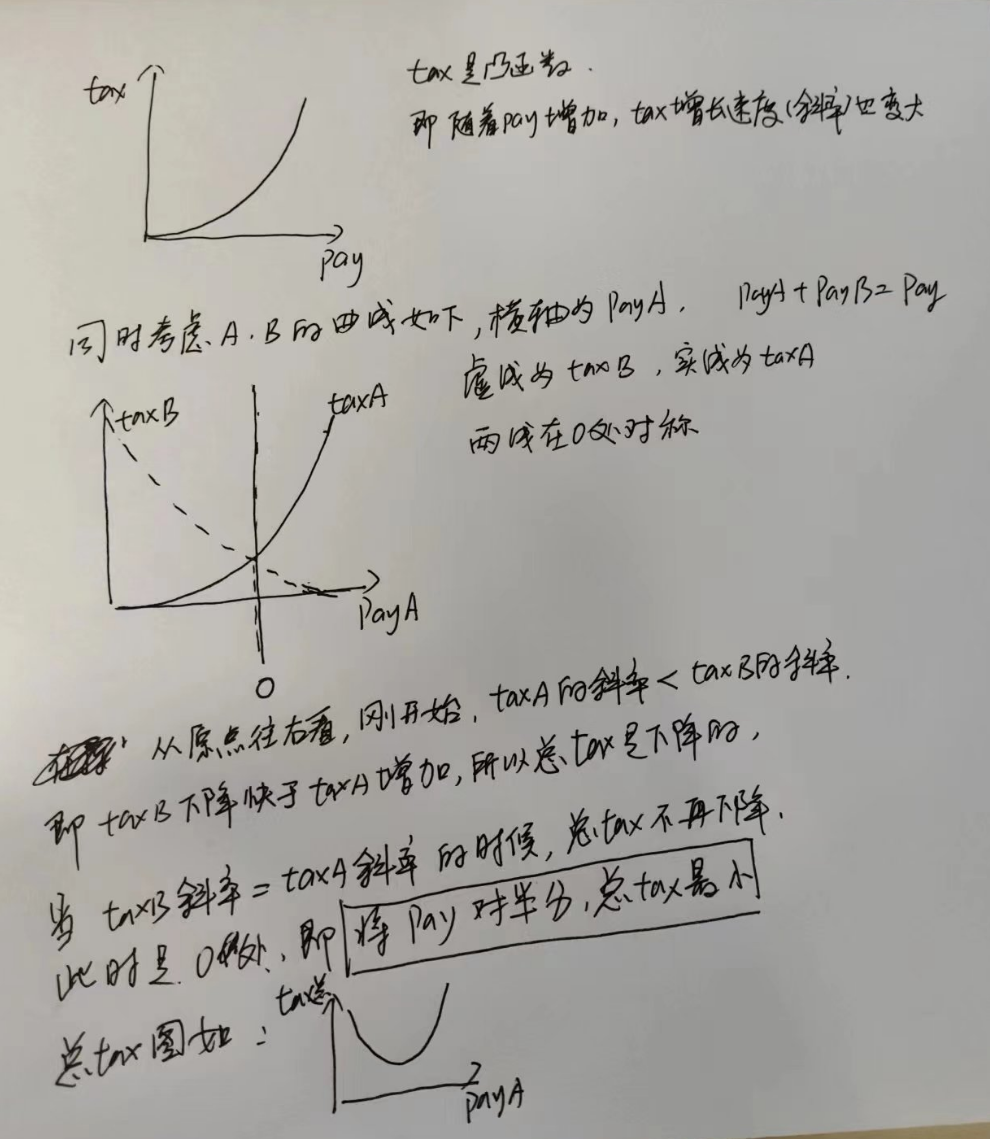 tax
tax是凸函数.
即随着pay增加,tax增长速度(斜率)也变大
pay
同时考虑A.B的曲线如下,横轴为PayA. PayA+PayB=Pay
虚线为taxB,实线为taxA
两线在O处对称
taxB
taxA
PayA
O
从原点往右看,刚开始,taxA的斜率<taxB的斜率.
即taxB下降快于taxA增加,所以总tax是下降的,
当taxB斜率=taxA斜率的时候,总tax不再下降.
此时是O处,即将Pay对半分,总tax最小
总tax图如:
tax总
PayA